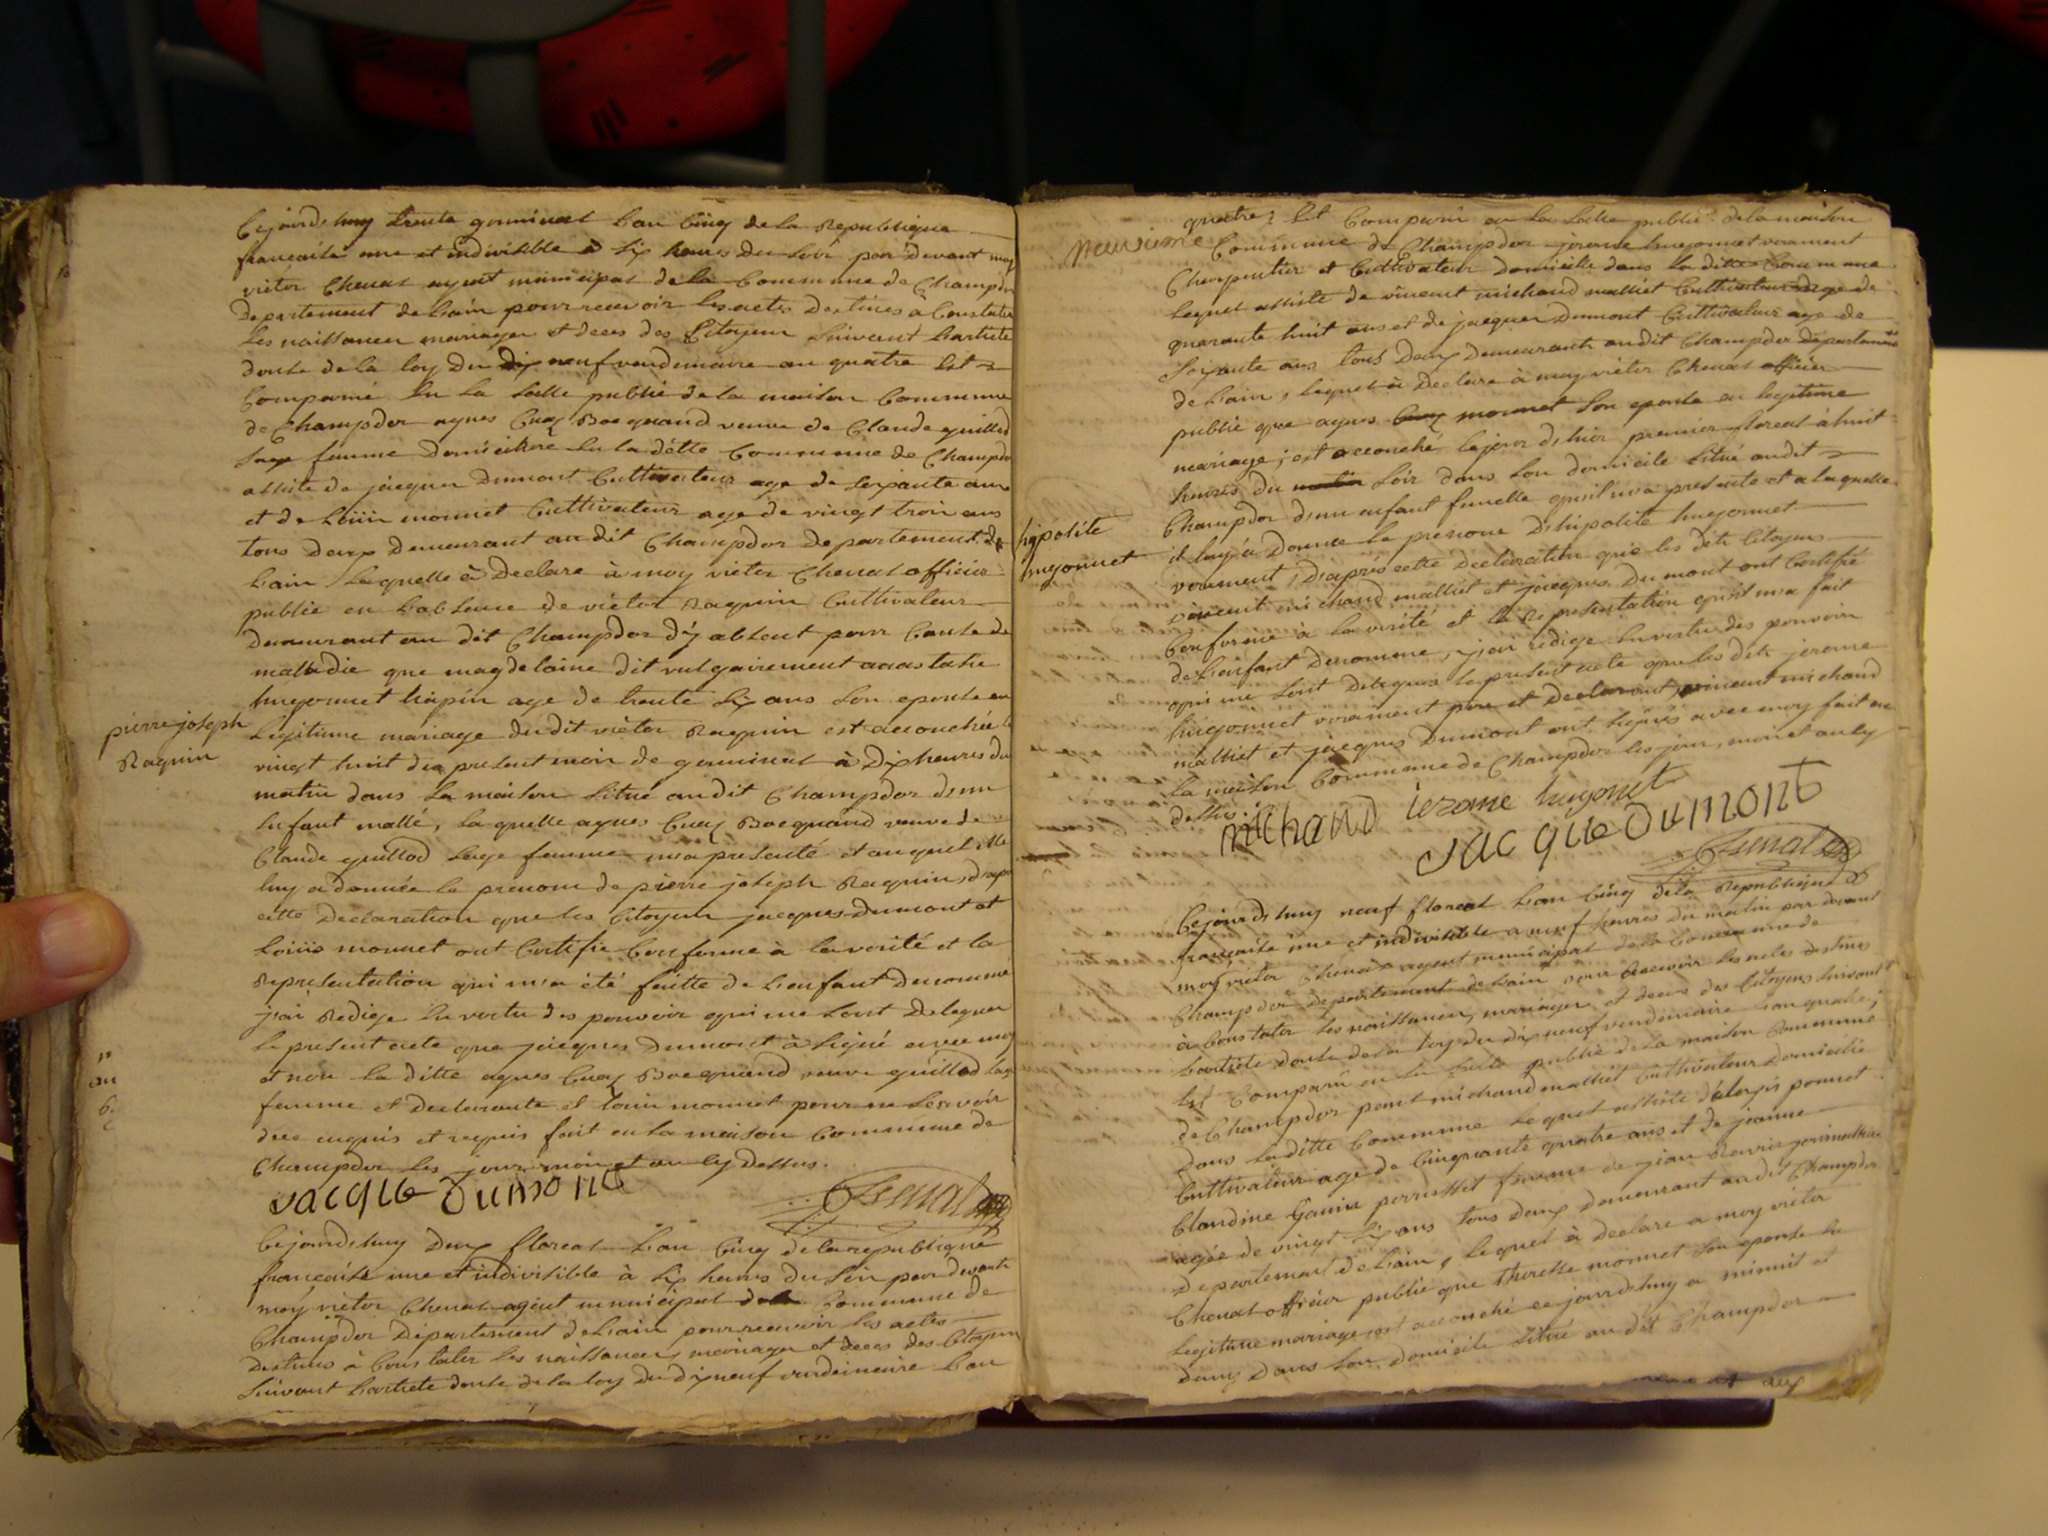 Cejourdhuy trente germinal Lan Cinq de la Republique
francaise une et indivisible à six heures du soir par devant moy
victor Chenal agent municipal de la Commune de Champdor
departement de Lain pour recevoir les actes destines a Constater
les naissances mariages et deces des Citoyens suivant Larticle
douse de la loy du dix neuf vendemiaire an quatre Est
Comparue En la salle publie de la maison Commune
de Champdor agnes Cuaz Bocquand veuve de Claude guillod
sage femme domiciliee En la ditte Commune de Champdor
assiste de jacques Dumont Cultivateur age de soixante ans
et de Loüis monnet Cultivateur age de vingt trois ans
tous deux demeurant au dit Champdor departement de
Lain Laquelle à Declare à moy victor Chenal officier
publie en Labsence de victor Raquin Cultivateur
demeurant au dit Champdor dy absent pour Cause de
maladie que magdelaine dit vulgairement anastasie
hugonnet age de trente six ans son epouse en
Legitime mariage dudit victor Raquin est accouchée le
vingt huit du present mois de germinal à dix heures du
matin dans sa maison situé audit Champdor dun
Enfant mallé, laquelle agnes Cuaz Bocquand veuve de
Claude guillod sage femme ma presenté et auquel Elle
luy a donnée le prenom de pierre joseph Raquin, dapres
cette Declaration que les Citoyens jacques dumont et
Loüis monnet ont Certifie Conforme à la verité et la
Representation qui ma été faitte de Lenfant denommé
jai Redige En vertu des pouvoir qui me sont Delegues
le present acte que jacques Dumont à signé avec moy
et non la ditte agnes Cuaz Bocquand veuve guillod sage
femme et declarante et Louis monnet pour ne Sçavoir
de ce enquis et requis fait en la maison Commune de
Champdor les jour, mois et an cy dessus.
Jacque Dumont Chenal
pierre joseph
Raquin
Cejourdhuy deux floreal Lan Cinq de la republique
francaise une et indivisible à six heures du soir par devant
moy victor Chenal agent municipal de la Commune de
Champdor Departement de Lain pour recevoir les actes
destines à Constater les naissances, mariages et deces des Citoyens
suivant Larticle douse de la loy du dix neuf vendemiaire Lan
quatre, Est Comparû en la salle publie de la maison
Commune de Champdor jerome hugonnet vrament
Charpentier et Cultivateur domicilie dans la ditte Commune
Lequel assiste de vincent michaud malliet Cultivateur age de
quarante huit ans et de jacques Dumont Cultivateur age de
soixante ans tous deux demeurants audit Champdor departement
de Lain, lequel à Declare à moy victor Chenal officier
publie que agnes Cuaz monnet son epouse en legitime
mariage, est accouché le jour dhier premier floreal à huit
heures du matin soir dans son domicile situé audit
Champdor dun enfant femelle quil ma presente et a laquelle
il luy a Donne le prenom Dhipolite hugonnet
vrament, Dapres cette Declaration que les dits Citoyens
vincent michaud malliet et jacques Dumont ont Certifie
Conforme à la verité et la Representation quil ma fait
de Lenfant denomme, jai redige En vertu des pouvoir
qui me sont delegues le present acte que les dits jerome
hugonnet vrament pere et declarant, vincent michaud
malliet et jacques Dumont ont signés avec moy fait en
la maison Commune de Champdor les jour, mois et an cy
dessus.
hypolite
hugonnet
michaud ierome hugonet
Jacque Dumont
Chenal
Cejourdhuy neuf floreal Lan Cinq de la Republique
francaise une et indivisible a neuf heures du matin par devant
moy victor Chenal agent municipal de la Commune de
Champdor departement de Lain pour Recevoir les actes destines
à Constater les naissances, mariages et deces des Citoyens suivant
Larticle douse de la loy du dix neuf vendemiaire Lan quatre;
Est Comparû en la salle publie de la maison Commune
de Champdor michaud malliet Cultivateur domicilie
dans la ditte Commune Lequel assiste
Cultivateur age de Cinquante quatre ans et de jeanne
Claudine femme de jean
agée de vingt six ans tous deux demeurant audit Champdor
departement de Lain, lequel à declare a moy victor
Chenal officier publie que theresse monnet son epouse en
legitime mariage est accouché ce jourdhuy a minuit et
demy dans son domicile situé au dit Champdor